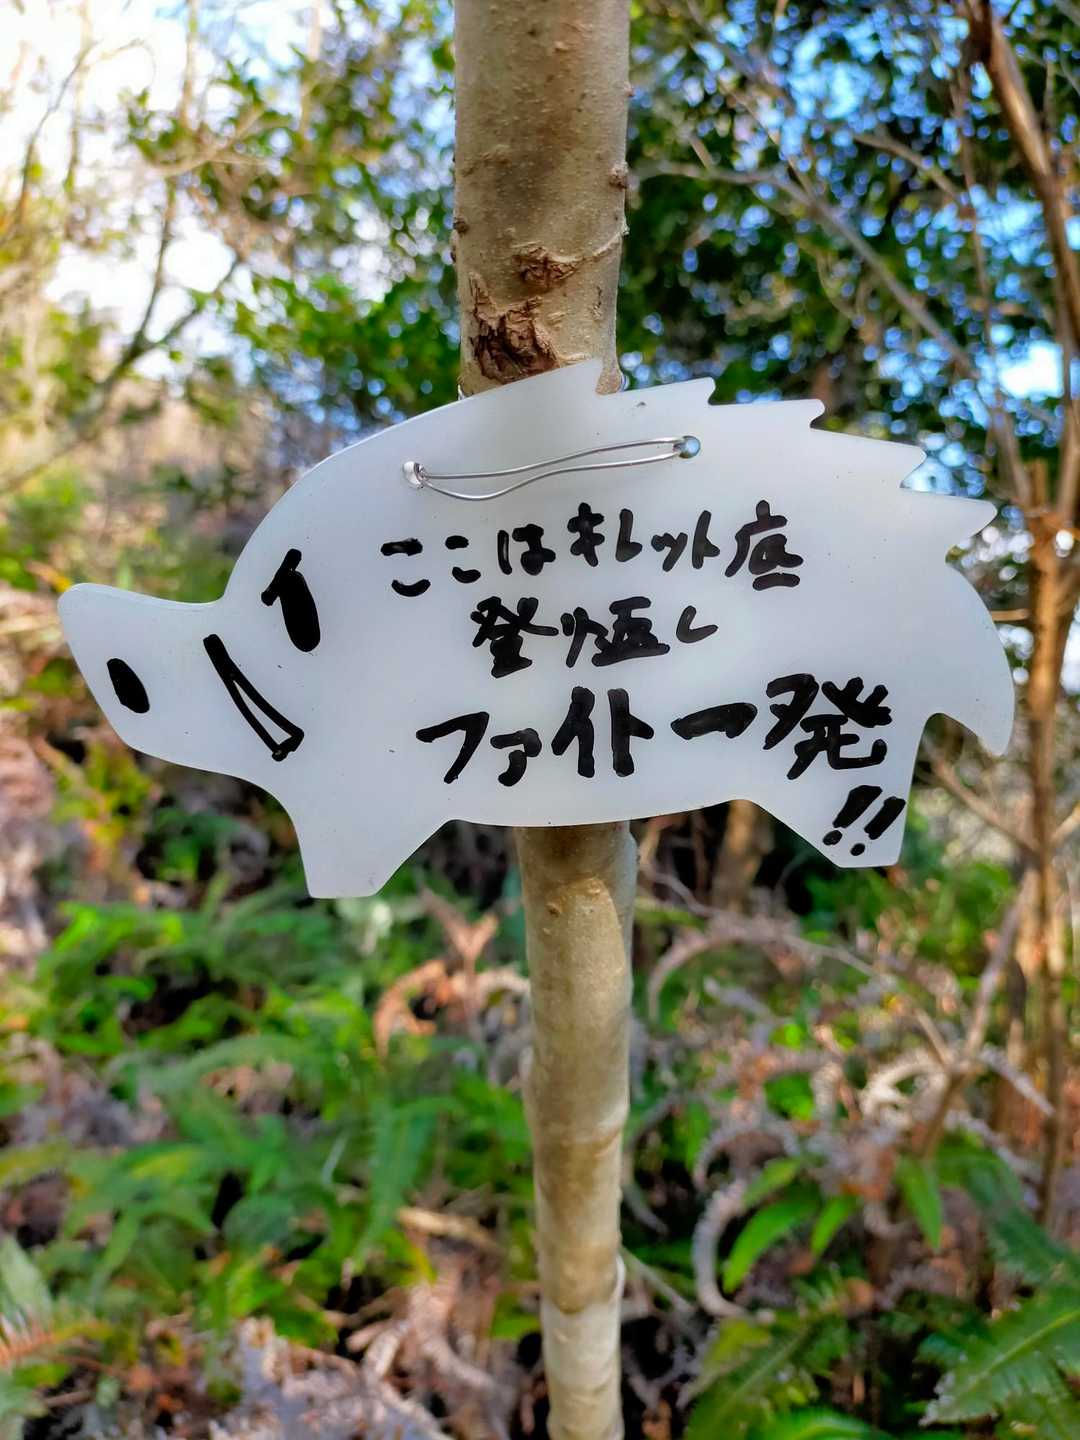 ここはキレット底
登り返し
ファイト一発
!!